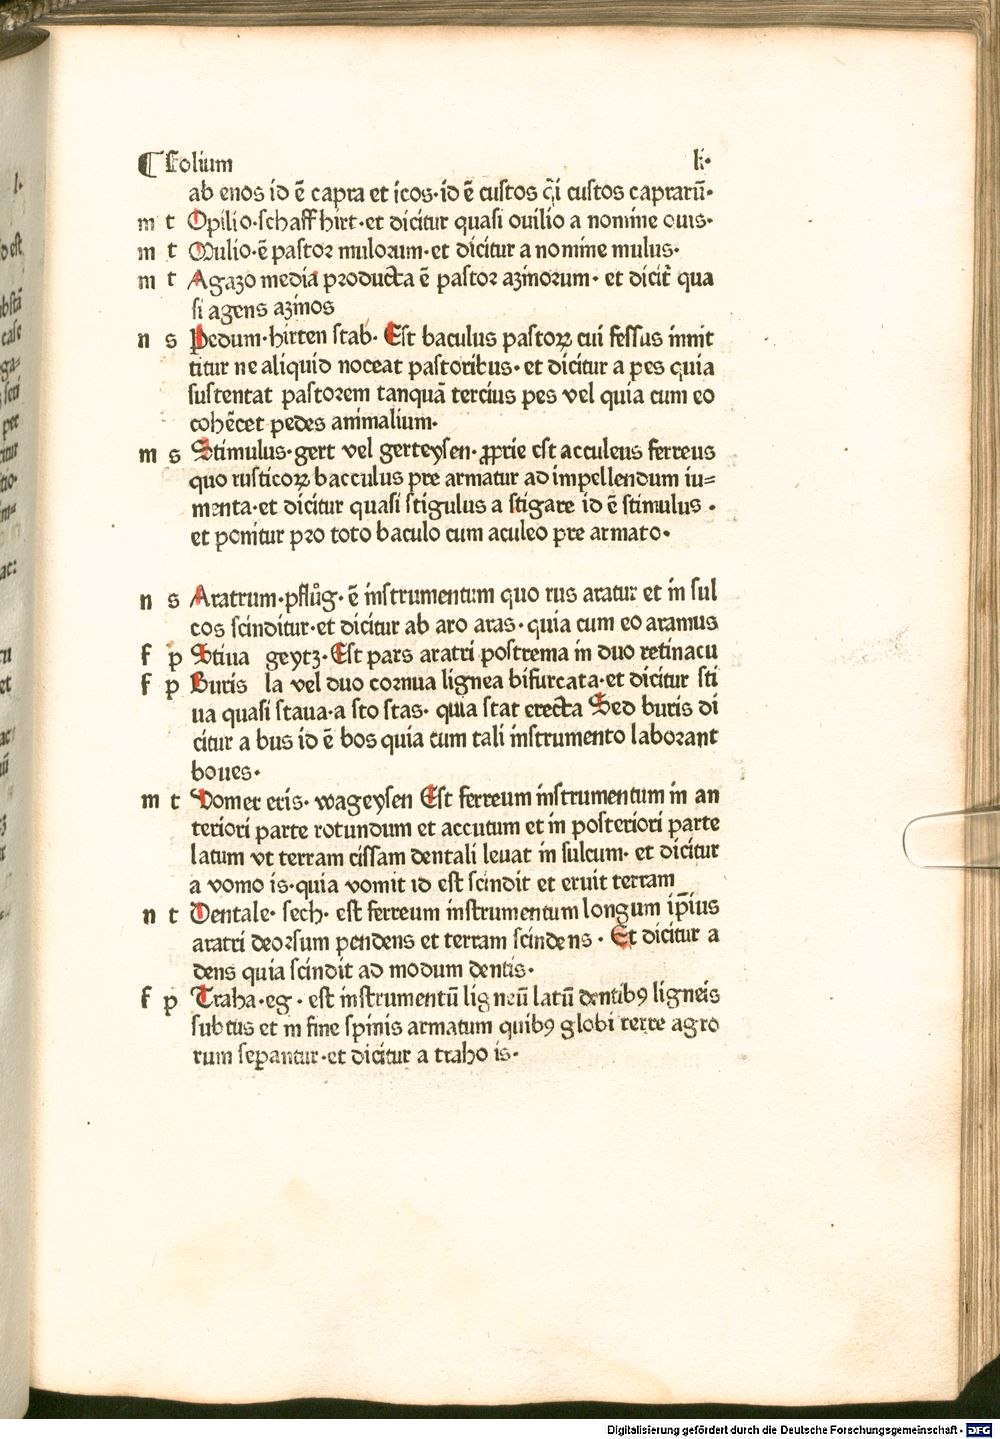 ¶ Folium li.
ab enos id ē capra et icos·id ē custos q̄i custos caprarū·
m t Opilio·schaff hirt·et dicitur quasi ouilio a nomine ouis·
m t Mulio·ē pastor mulorum·et dicitur a nomine mulus·
m t Agazo media producta ē pastor azinorum· et dicit̄ qua
si agens azinos
n s Pedum·hirten stab· Est baculus pastoꝝ cui fessus innit
titur ne aliquid noceat pastoribus·et dicitur a pes quia
sustentat pastorem tanquā tercius pes vel quia cum eo
cohēcet pedes animalium·
m s Stimulus·gert vel gerteysen·ꝓprie est acculeus ferreus
quo rusticoꝝ bacculus pre armatur ad impellendum iu=
menta·et dicitur quasi stigulus a stigare id ē stimulus ·
et ponitur pro toto baculo cum aculeo pre armato·
n s Aratrum·pflůg·ē instrumentum quo rus aratur et in sul
cos scinditur·et dicitur ab aro aras·quia cum eo aramus
f p Stiua geytz·Est pars aratri postrema in duo retinacu
f p Buris la vel duo cornua lignea bifurcata·et dicitur sti
ua quasi staua·a sto stas· quia stat erecta Sed buris di
citur a bus id ē bos quia cum tali instrumento laborant
boues·
m t Vomer eris· wageysen Est ferreum instrumentum in an
teriori parte rotundum et accutum et in posteriori parte
latum vt terram cissam dentali leuat in sulcum· et dicitur
a vomo is·quia vomit id est scindit et eruit terram
n t Dentale· sech· est ferreum instrumentum longum ip̄ius
aratri deorsum pendens et terram scindens · Et dicitur a
dens quia scindit ad modum dentis·
f p Traha·eg· est instrumentū ligneū latū dentibꝰ ligneis
subtus et in fine spinis armatum quibꝰ globi terre agro
rum sepantur·et dicitur a traho is·
Digitalisierung gefördert durch die Deutsche Forschungsgemeinschaft - DFG